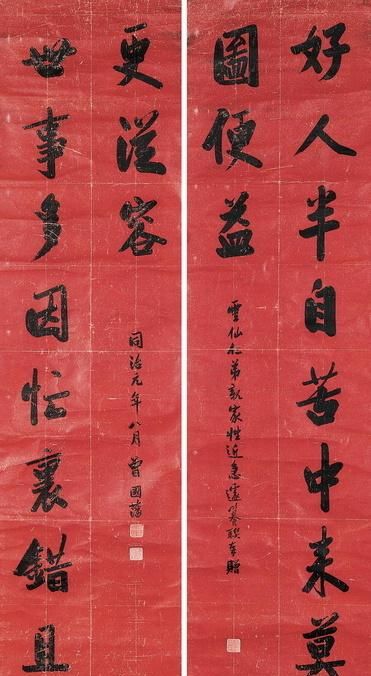 好人半自苦中来莫
圖便益
雲仙仁弟親家性近急遽纂聯奉贈
世事多因忙裏錯且
更從容
同治元年八月曾國藩